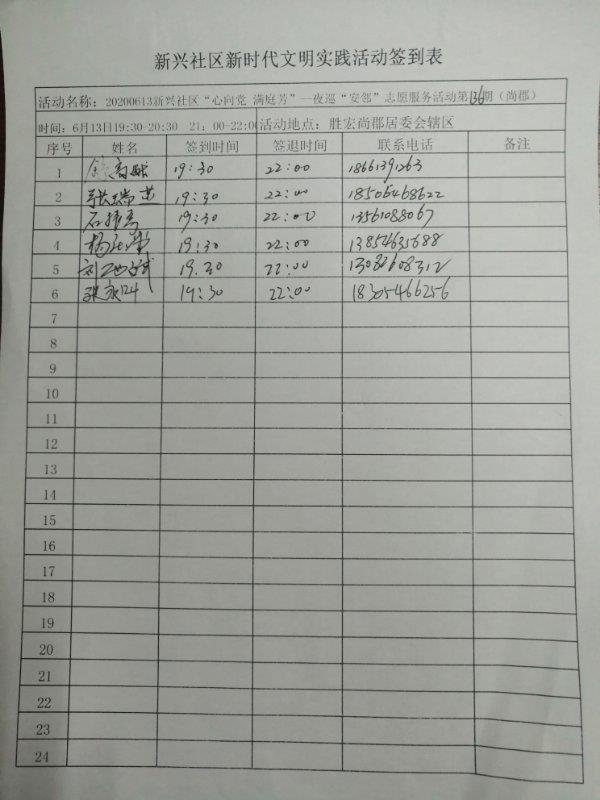 新兴社区新时代文明实践活动签到表
活动名称：20200613新兴社区“心向党 满庭芳”--夜巡“安邻”志愿服务活动第136期（尚郡）
时间：6月13日19:30-20:30 21：00-22:00 活动地点：胜宏尚郡居委会辖区
序号 姓名 签到时间 签退时间 联系电话 备注
1 19:30 22:00 18661391263
2 张瑞芝 19:30 22:00 18506468622
3 19:30 22:00 13561088067
4 19:30 22:00 13854635688
5 19.30 22:00
6 19:30 22:00 18305466256
7
8
9
10
11
12
13
14
15
16
17
18
19
20
21
22
23
24